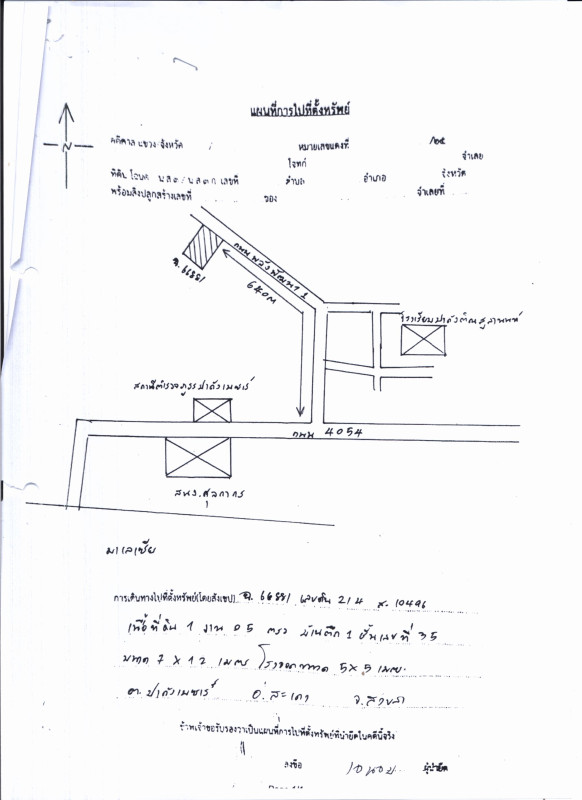 แผนที่การไปที่ตั้งทรัพย์
N
คดีศาล แขวง/จังหวัด หมายเลขแดงที่ /๒๕
โจทก์ จำเลย
ที่ดิน โฉนด น.ส.๓/น.ส.๓ ก. เลขที่ ตำบล อำเภอ จังหวัด
พร้อมสิ่งปลูกสร้างเลขที่ ของ จำเลยที่
ฉ. 66881
640M
โรงเรียนปาดังติณสูลานนท์
สถานีตำรวจภูธรปาดังเบซาร์
ถนน 4054
ศุลกากร
มาเลเซีย
การเดินทางไปที่ตั้งทรัพย์(โดยสังเขป) ฉ. 66881 เลขดิน 214 ส. 10496
เนื้อที่ดิน 1 งาน 05 ตรว 1 ชั้นเลขที่ 35
ขนาด 7 X 12 เมตร โรงจอด ขนาด 5X5 เมตร
ต. ปาดังเบซาร์ อ. สะเดา จ. สงขลา
ข้าพเจ้าขอรับรองว่าเป็นแผนที่การไปที่ตั้งทรัพย์ที่นำยึดในคดีนี้จริง
ลงชื่อ ผู้นำยึด